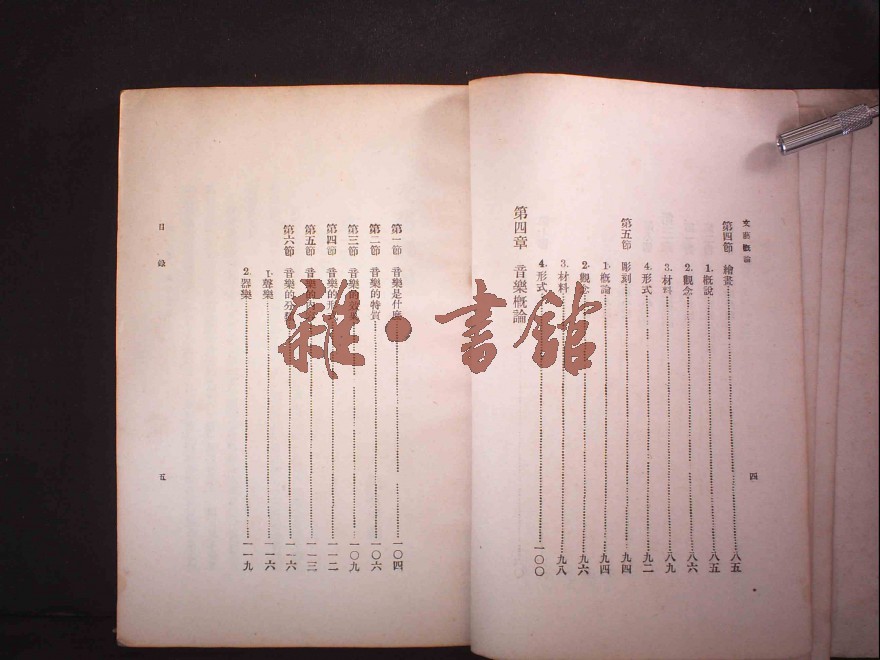 文藝概論
四
第四節 繪畫……八五
1. 概說……八五
2. 觀念……八六
3. 材料……八九
4. 形式……九二
第五節 彫刻……九四
1. 概論……九四
2. 觀念……九六
3. 材料……九八
4. 形式……一〇〇
第四章 音樂概論
第一節 音樂是什麼……一〇四
第二節 音樂的特質……一〇六
第三節 音樂的……一〇九
第四節 音樂的形式……一一二
第五節 音樂的……一一三
第六節 音樂的分類……一一六
1. 聲樂……一一六
2. 器樂……一一九
目錄
五
雜·書館